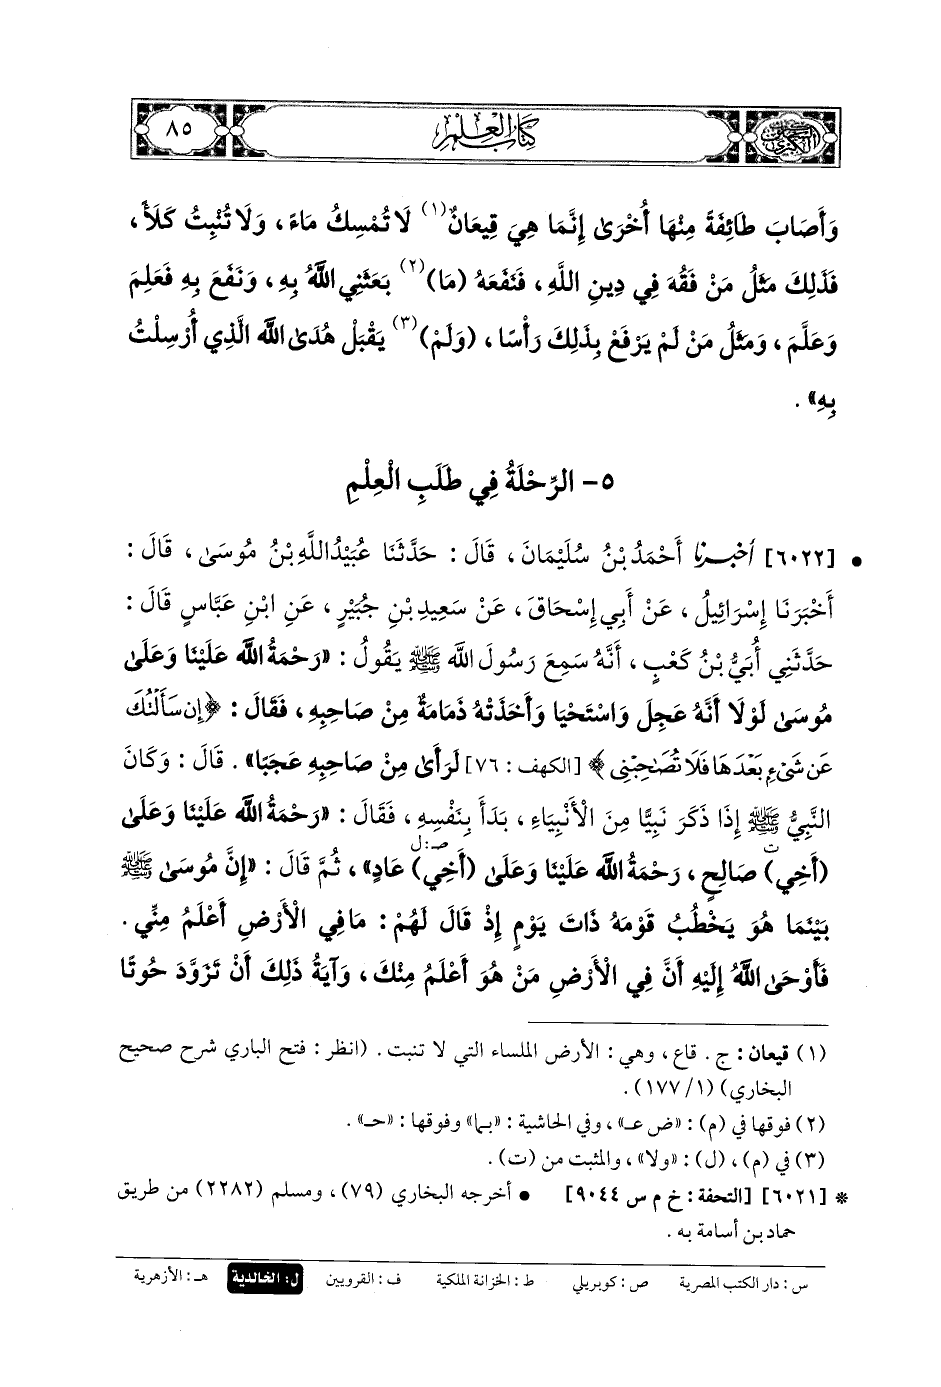 السنن الكبرى كتاب العلم ٨٥
وَأَصَابَ طَائِفَةً مِنْهَا أُخْرَىٰ إِنَّمَا هِيَ قِيعَانٌ(١) لَا تُمْسِكُ مَاءً، وَلَا تُنْبِتُ كَلَأً،
فَذَلِكَ مَثَلُ مَنْ فَقُهَ فِي دِينِ اللَّهِ، فَنَفَعَهُ (مَا)(٢) بَعَثَنِي اللَّهُ بِهِ، وَنَفَعَ بِهِ فَعَلِمَ
وَعَلَّمَ، وَمَثَلُ مَنْ لَمْ يَرْفَعْ بِذَلِكَ رَأْسًا، (وَلَمْ)(٣) يَقْبَلْ هُدَى اللَّه الَّذِي أُرْسِلْتُ
بِهِ».
٥- الرِّحْلَةُ فِي طَلَبِ الْعِلْمِ
• [٦٠٢٢] أخبرنا أَحْمَدُ بْنُ سُلَيْمَانَ، قَالَ: حَدَّثَنَا عُبَيْدُ اللَّهِ بْنُ مُوسَىٰ، قَالَ:
أَخْبَرَنَا إِسْرَائِيلُ، عَنْ أَبِي إِسْحَاقَ، عَنْ سَعِيدِ بْنِ جُبَيْرٍ، عَنِ ابْنِ عَبَّاسٍ قَالَ:
حَدَّثَنِي أُبَيُّ بْنُ كَعْبٍ، أَنَّهُ سَمِعَ رَسُولَ اللَّه ﷺ يَقُولُ: «رَحْمَةُ اللَّه عَلَيْنَا وَعَلَىٰ
مُوسَىٰ لَوْلَا أَنَّهُ عَجِلَ وَاسْتَحْيَا وَأَخَذَتْهُ ذَمَامَةٌ مِنْ صَاحِبِهِ، فَقَالَ: ﴿إِن سَأَلْتُكَ
عَن شَيْءٍ بَعْدَهَا فَلَا تُصَٰحِبْنِي﴾ [الكهف: ٧٦] لَرَأَىٰ مِنْ صَاحِبِهِ عَجَبًا». قَالَ: وَكَانَ
النَّبِيُّ ﷺ إِذَا ذَكَرَ نَبِيًّا مِنَ الْأَنْبِيَاءِ، بَدَأَ بِنَفْسِهِ، فَقَالَ: «رَحْمَةُ اللَّه عَلَيْنَا وَعَلَىٰ
ت صـ: ل
(أَخِي) صَالِحٍ، رَحْمَةُ اللَّه عَلَيْنَا وَعَلَىٰ (أَخِي) عَادٍ»، ثُمَّ قَالَ: «إِنَّ مُوسَىٰ ﷺ
بَيْنَمَا هُوَ يَخْطُبُ قَوْمَهُ ذَاتَ يَوْمٍ إِذْ قَالَ لَهُمْ: مَا فِي الْأَرْضِ أَعْلَمُ مِنِّي.
فَأَوْحَى اللَّهُ إِلَيْهِ أَنَّ فِي الْأَرْضِ مَنْ هُوَ أَعْلَمُ مِنْكَ، وَآيَةُ ذَلِكَ أَنْ تَزَوَّدَ حُوتًا
(١) قيعان: ج. قاع، وهي: الأرض الملساء التي لا تنبت. (انظر: فتح الباري شرح صحيح
البخاري) (١/ ١٧٧).
(٢) فوقها في (م): «ض عـ»، وفي الحاشية: «بما» وفوقها: «حـ».
(٣) في (م)، (ل): «ولا»، والمثبت من (ت).
* [٦٠٢١] [التحفة: خ م س ٩٠٤٤] • أخرجه البخاري (٧٩)، ومسلم (٢٢٨٢) من طريق
حماد بن أسامة به.
س: دار الكتب المصرية ص: كوبريلي ط: الخزانة الملكية ف: القرويين ل: الخالدية هـ: الأزهرية